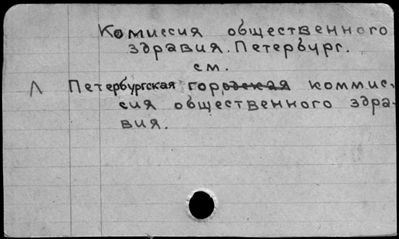 Комиссия общественного
здравия. Петербург.
см.
Л Петербургская городская коммис-
сия общественного здра-
вия.